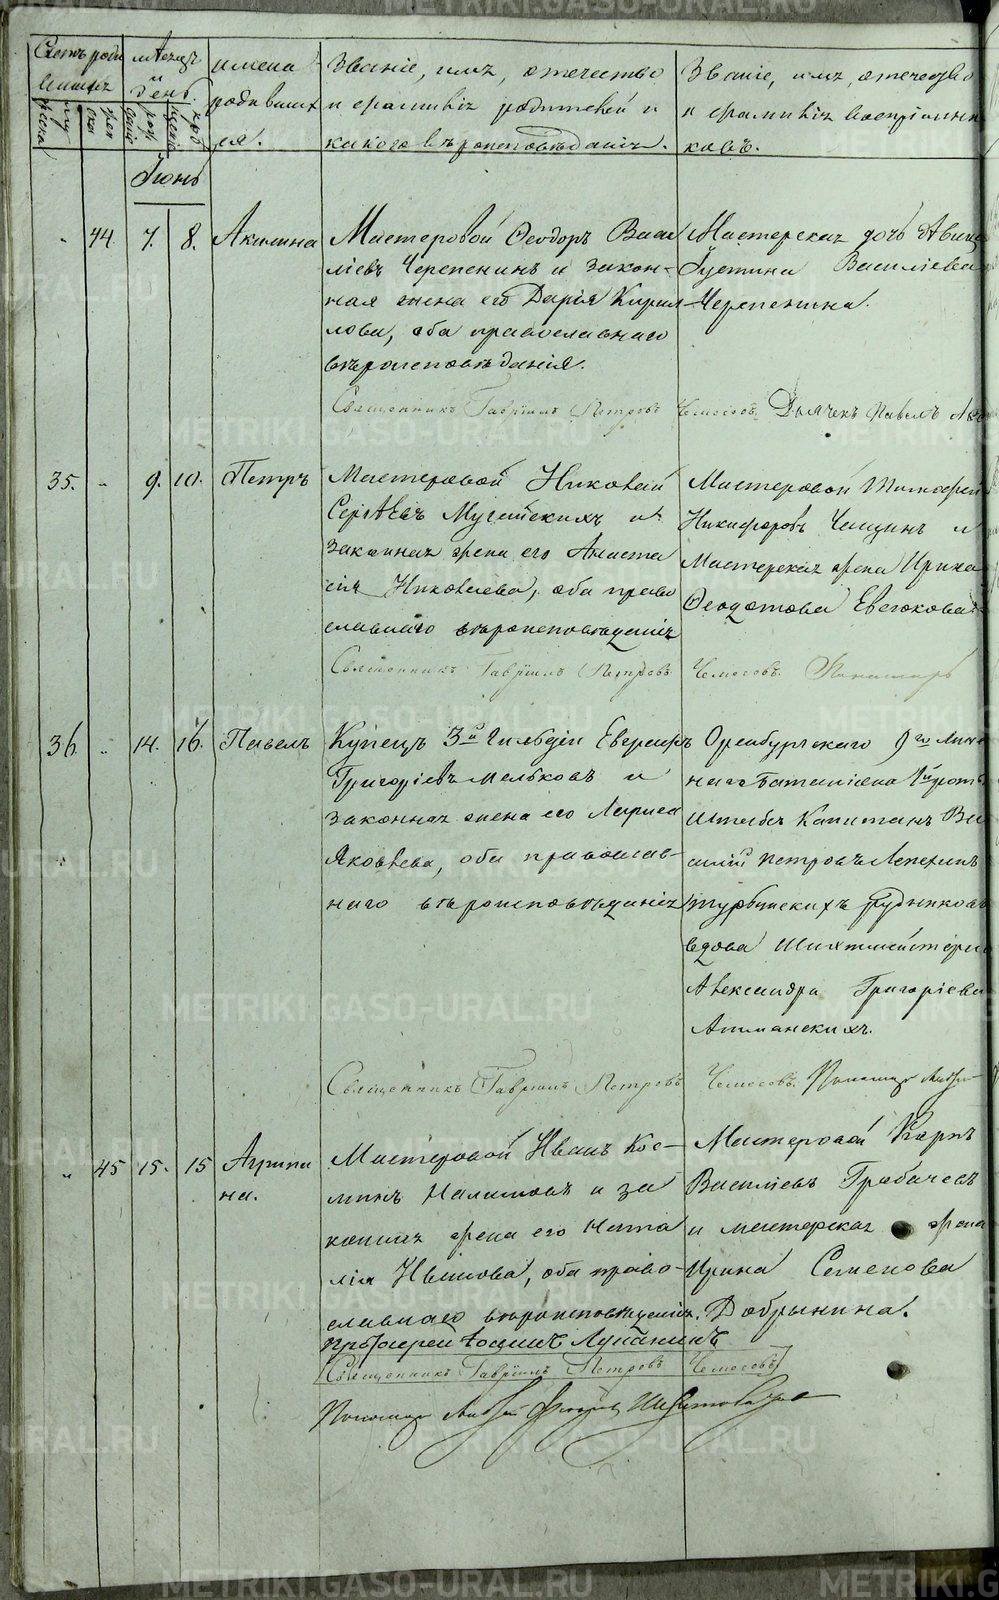 Счетъ роди
вшихся
муж. пола
жен. пола
мѣсяцъ
и
день.
рожденія
крещенія
имена
родивших
ся.
Званіе, имя, отечество
и фамилія родителей и
какого вѣроисповѣданія.
Званіе, имя, отечество
и фамилія воспріемни
ковъ.
Іюнь
44. 7. 8. Акилина
Мастеровой Ѳеодоръ Васи
ліевъ Черепенинъ и закон-
ная жена его Дарія Кирил
лова, оба православнаго
вѣроисповѣданія.
Мастерская дочь дѣвица
Іустина Василіева
Черепенина.
Священникъ Гавріилъ Петровъ Дьячекъ Павелъ
35. 9. 10. Петръ
Мастеровой Николай
Сергѣевъ и
законная жена его Анаста
сія Николаева, оба право
славнаго вѣроисповѣданія
Мастеровой Тимофей
Никифоровъ и
Мастерская жена Ирина
Ѳеодотова Евсюкова
Священникъ Гавріилъ Петровъ Пономарь
36. 14. 16. Павелъ
Купецъ 3й гильдіи
Григоріевъ Мельковъ и
законная жена его Лариса
Яковлева, оба православ-
наго вѣроисповѣданія
Оренбургскаго 9го Линей
наго Баталіона 1й роты
Штабсъ Капитанъ Ва
силій Петровъ Лепехинъ
Турьинскихъ рудниковъ
вдова Шихтмейстера
Александра Григоріева
Священникъ Гавріилъ Петровъ Пономарь
45 15. 15 Агрипи
на.
Мастеровой Иванъ Кос-
минъ Налимовъ и за
конная жена его Ната
лія Иванова, оба право-
славнаго вѣроисповѣданія.
Мастеровой Карпъ
Василіевъ Грабачевъ
и мастерская жена
Ирина Семенова
Добрынина.
Протоіерей Іоаннъ Лупанинъ
Священникъ Гавріилъ Петровъ
Пономарь
METRIKI.GASO-URAL.RU